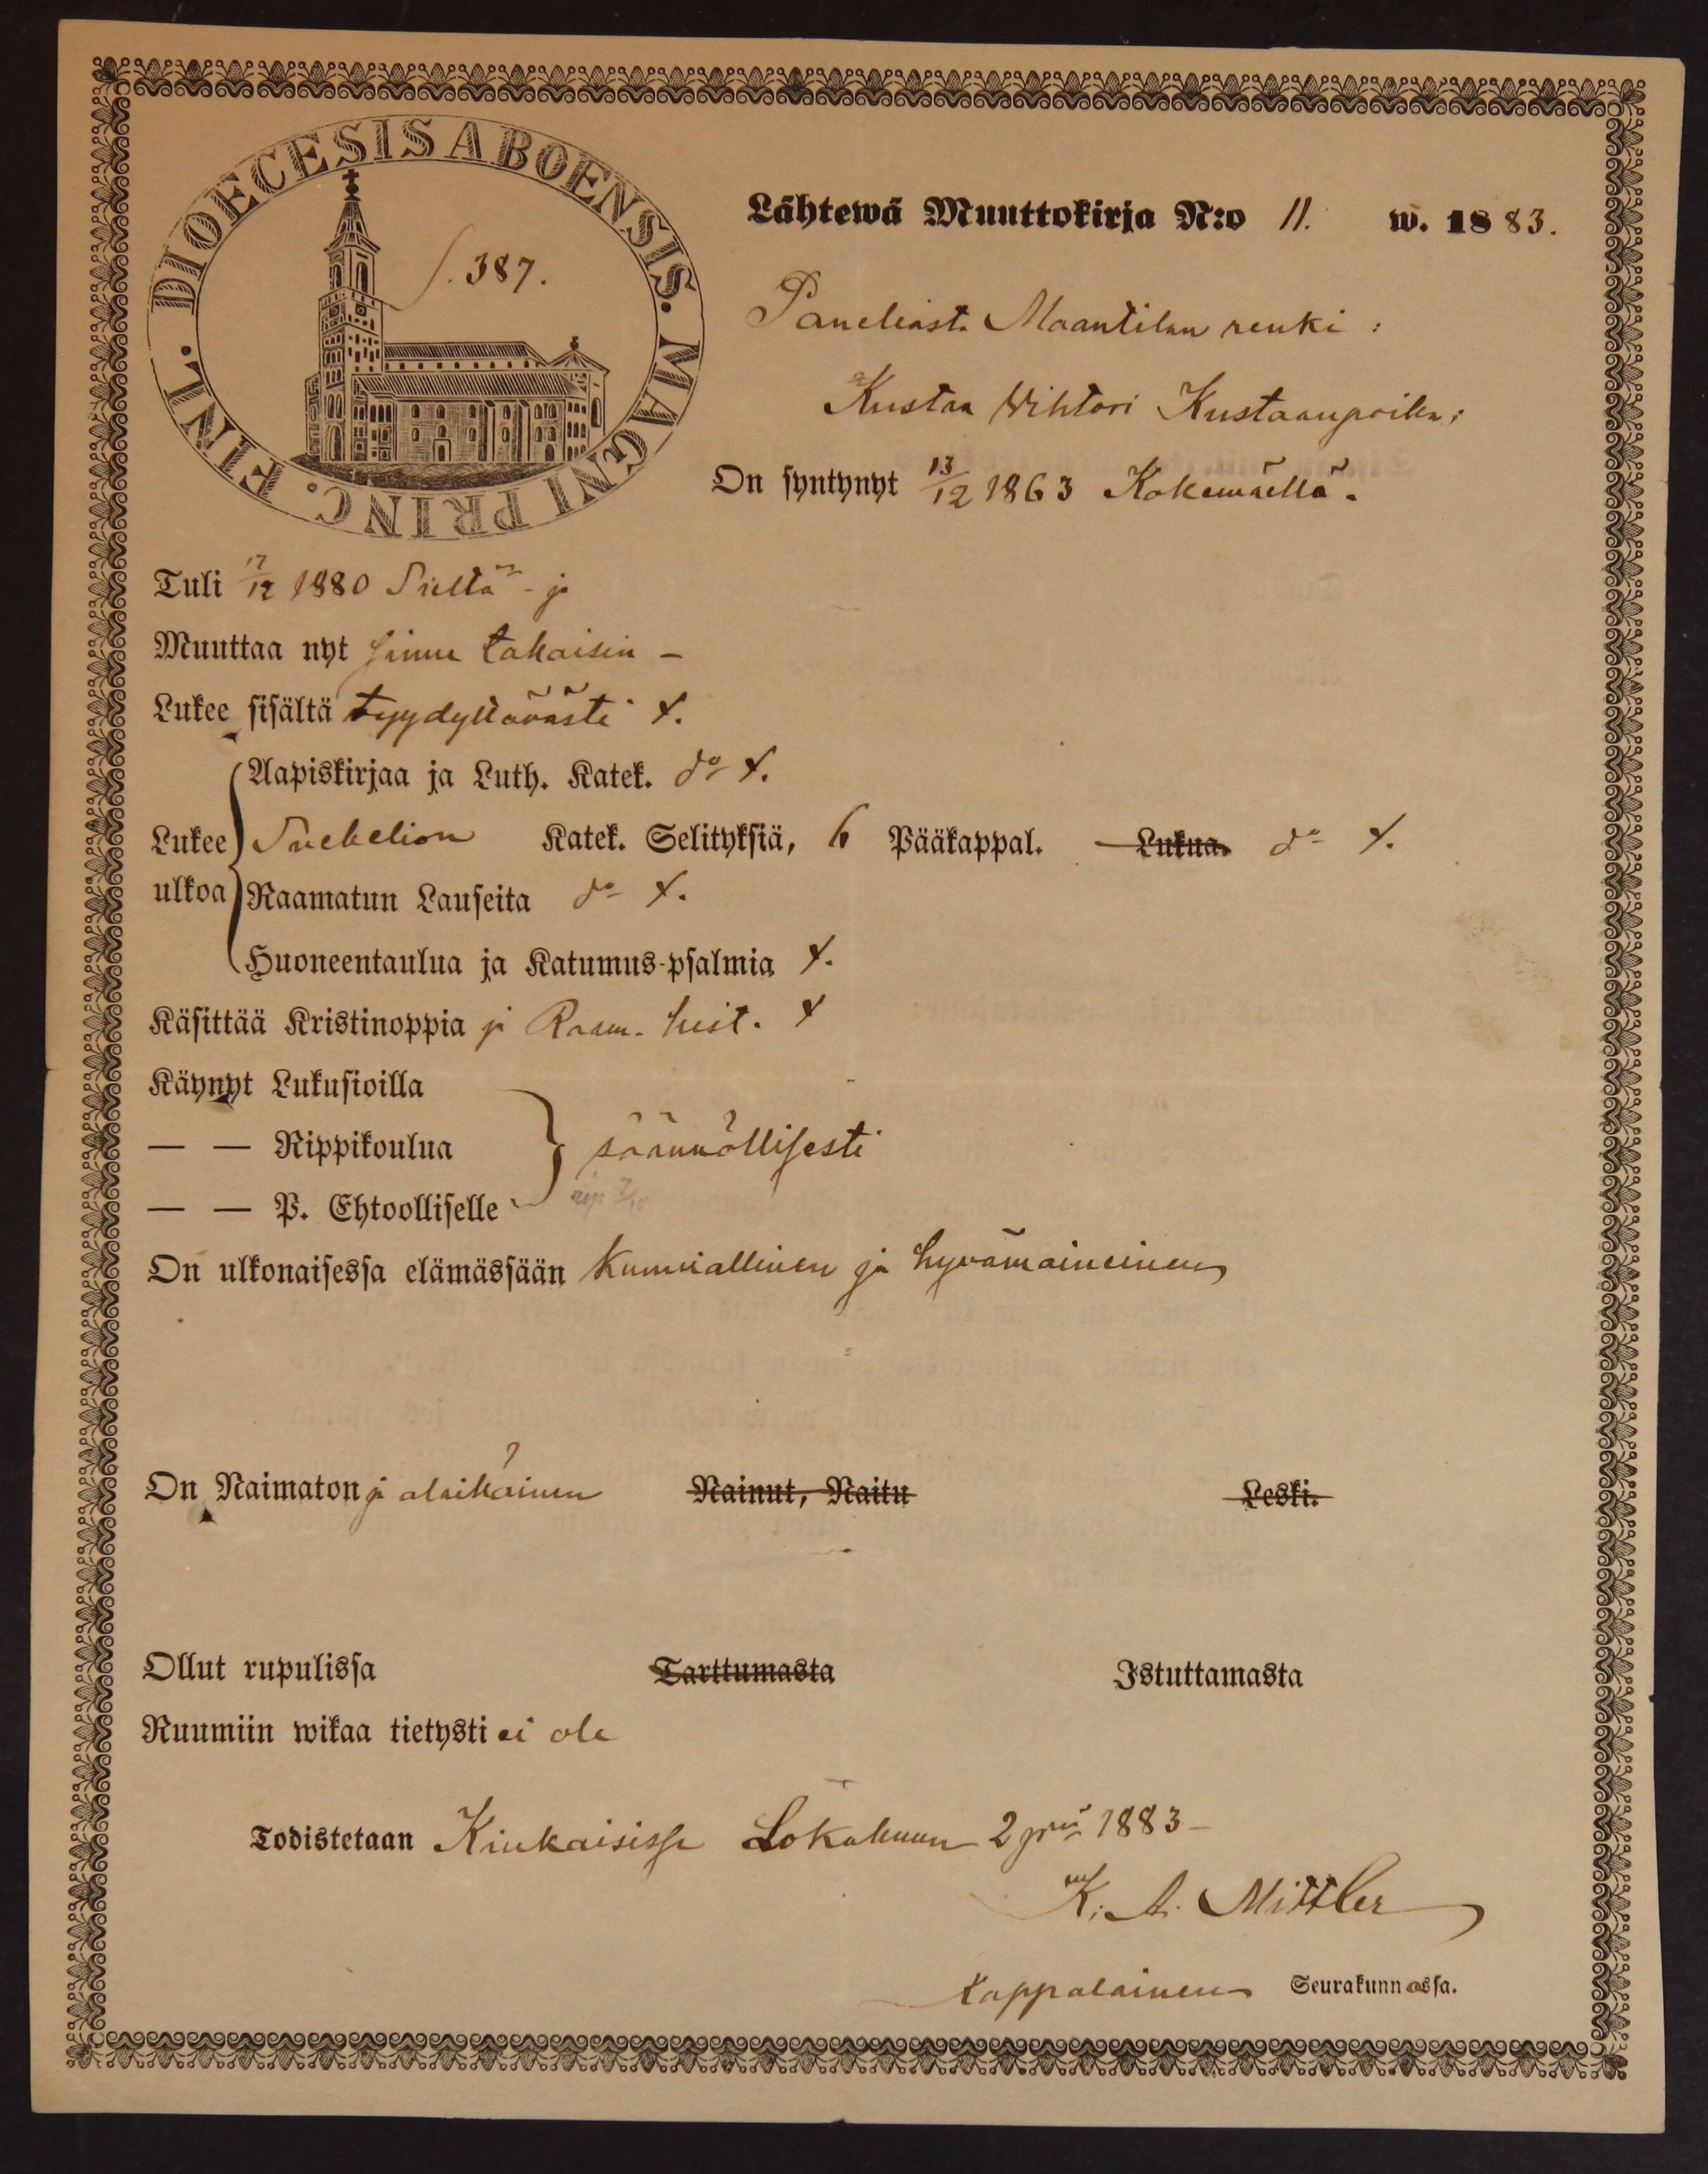 DIOECESIS ABOENSIS. MAGNI PRINC. FINL.
S. 387.
Lähtewä Muuttokirja N:o 11. w. 1883.
Paneliasta Maantilan renki :
Kustaa Wihtori Kustaanpoika;
On syntynyt 13/12 1863 Kokemäellä.
Tuli 17/12 1880 Sieltä - ja
Muuttaa nyt sinne takaisin -
Lukee sisältä tyydyttävästi x.
Aapiskirjaa ja Luth. Katek. do x.
Lukee ulkoa Svebelion Katek. Selityksiä, 6 Pääkappal. Lukua. do x.
Raamatun Lauseita do x.
Huoneentaulua ja Katumus-psalmia x.
Käsittää Kristinoppia ja Raam. hist. x
Käynyt Lukusioilla
— — Rippikoulua säännöllisesti
— — P. Ehtoolliselle
On ulkonaisessa elämässään kunniallinen ja hyvämaineinen
On Naimaton ja alaikäinen Nainut, Naitu Leski.
Ollut rupulissa Tarttumasta Istuttamasta
Ruumiin wikaa tietysti ei ole
Todistetaan Kiukaisissa Lokakuun 2 pnä 1883 -
K. A. Mittler
Kappalainen Seurakunnassa.